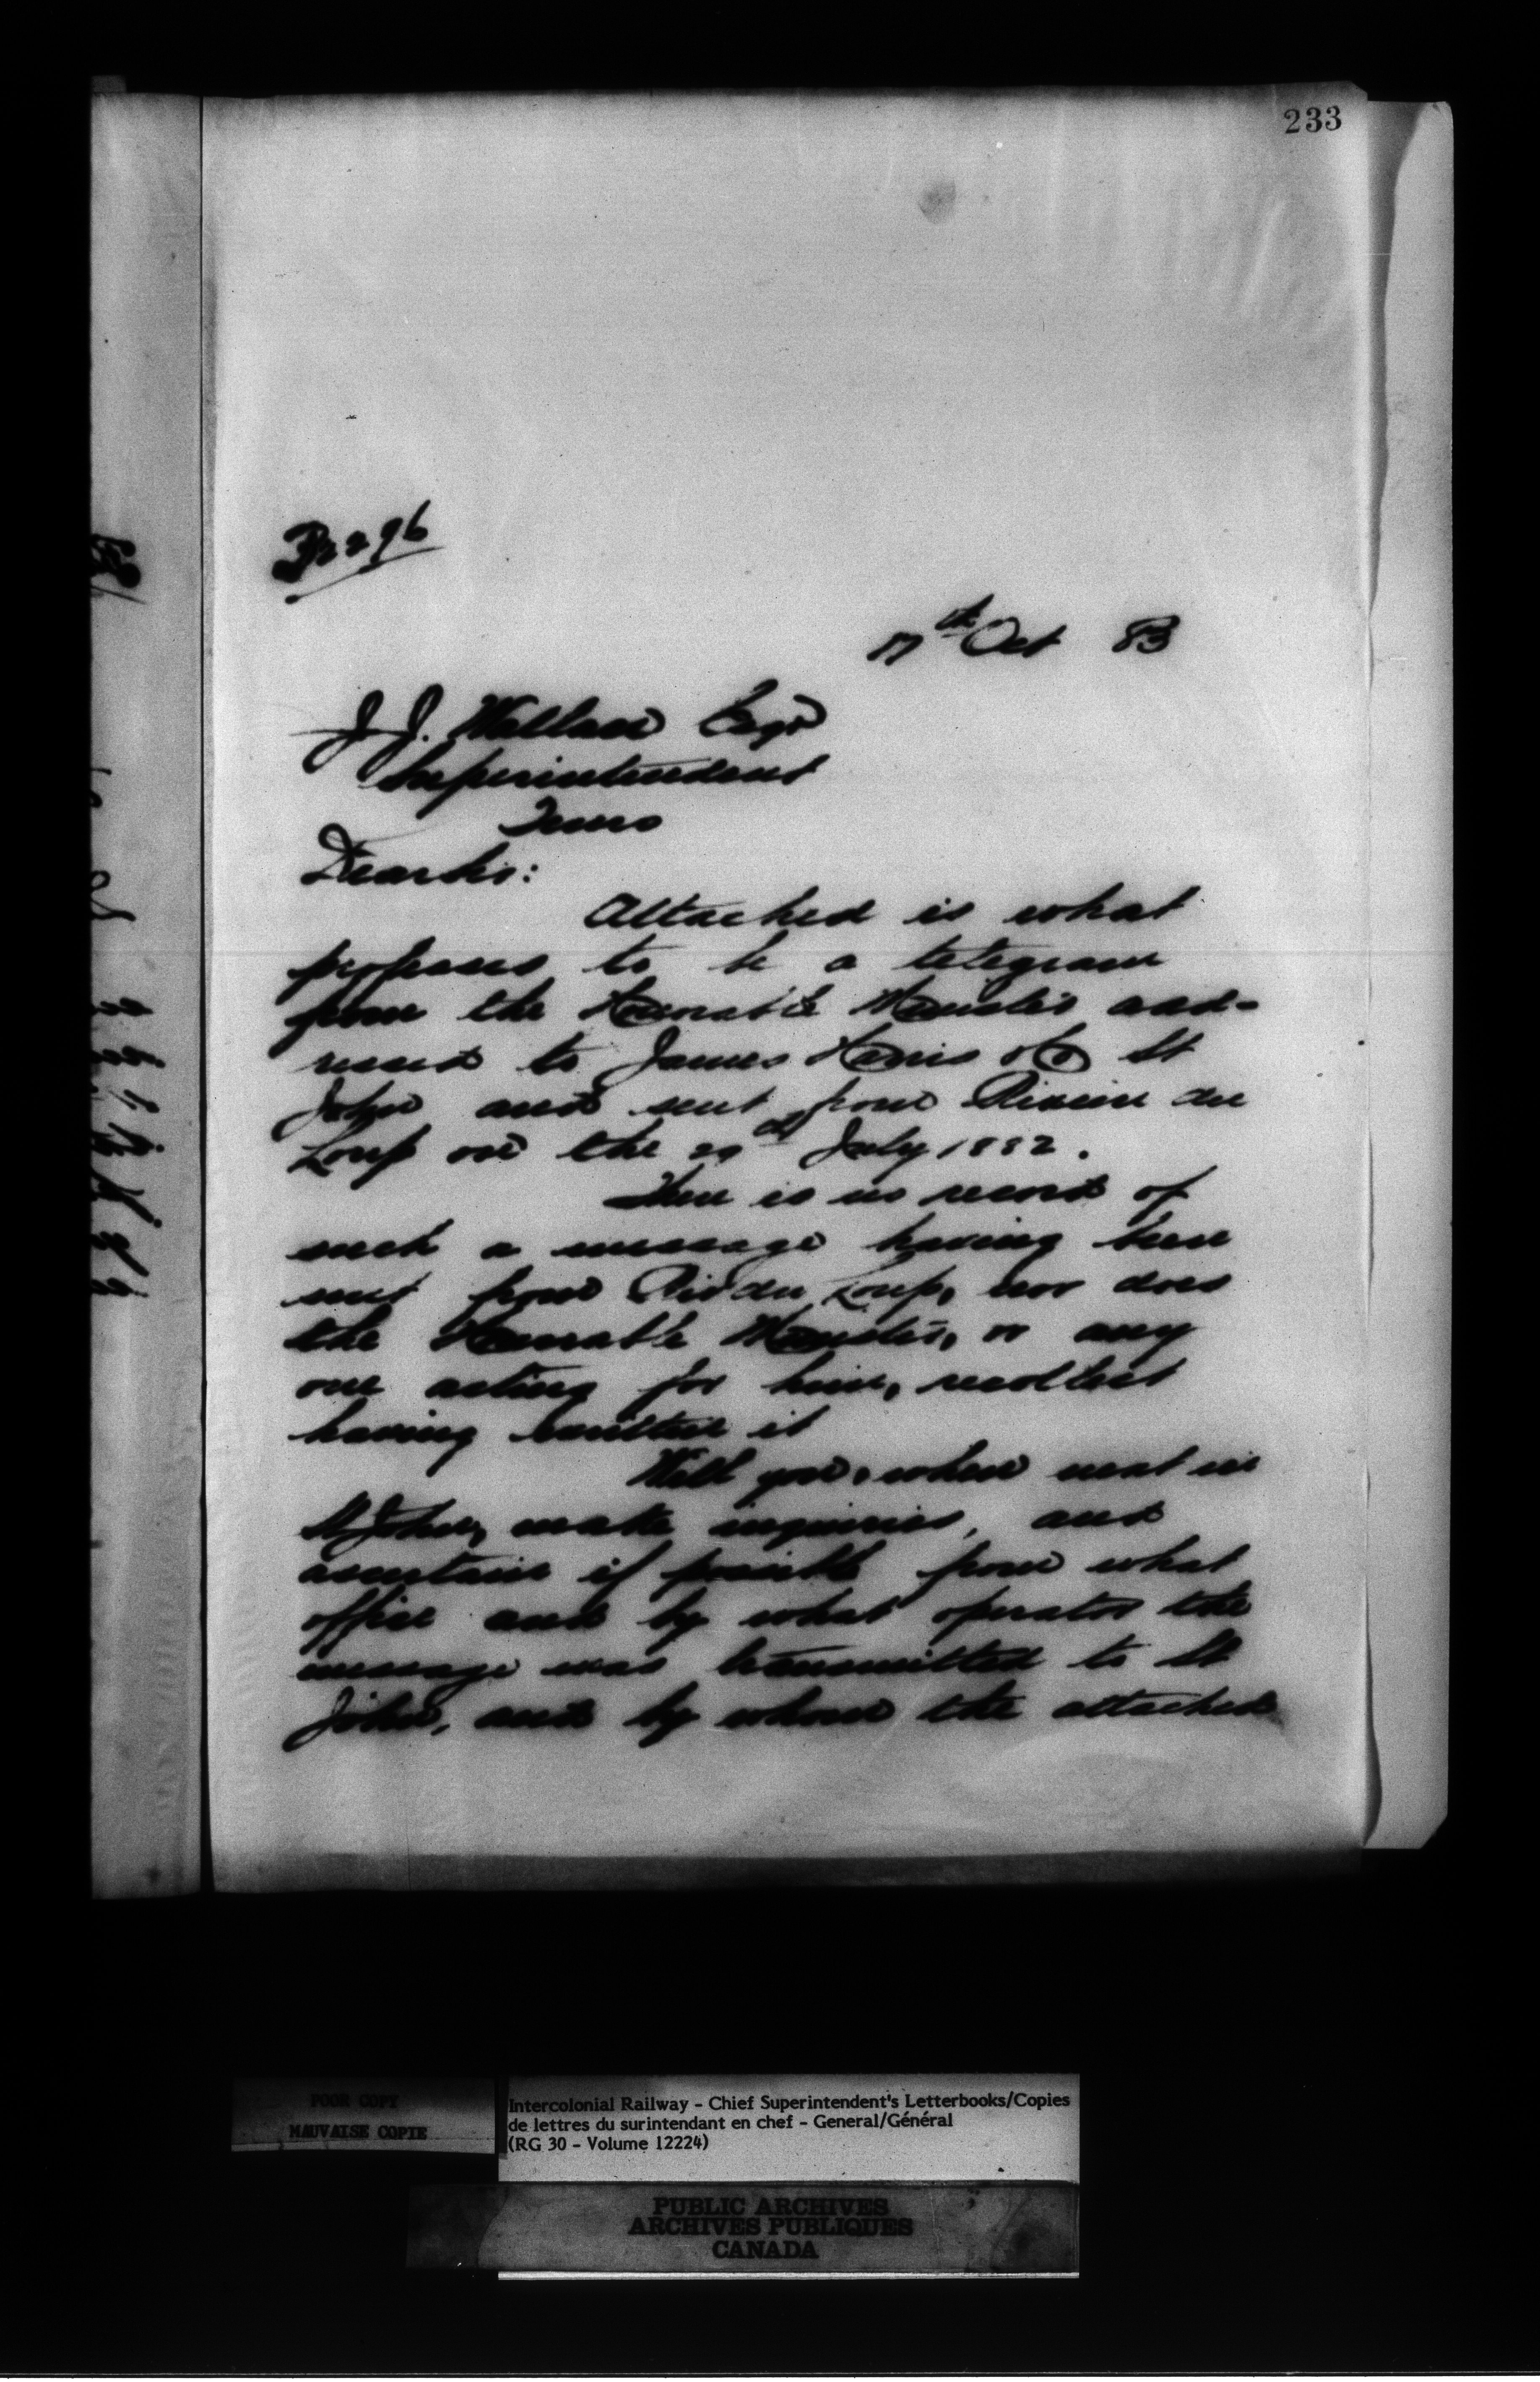 233
17th Oct 83
J. J. Wallace Esqr
Superintendent
Truro
Dear Sir:
Attached is what
professes to be a telegram
from the Honorable Minister add-
ressed to James Harris &Co St
John and sent from Riviere du
Loup on the 29th July 1882.
There is no record of
such a message having been
sent from Riv du Loup, nor does
the Honorable Minister, or any
one acting for him, recollect
having written it
Will you, when next in
St John, make inquiries, and
ascertain if possible from what
office and by what operator the
message was transmitted to St
John, and by whom the attached
POOR COPY
MAUVAISE COPIE
Intercolonial Railway - Chief Superintendent's Letterbooks/Copies
de lettres du surintendant en chef - General/Général
(RG 30 - Volume 12224)
PUBLIC ARCHIVES
ARCHIVES PUBLIQUES
CANADA